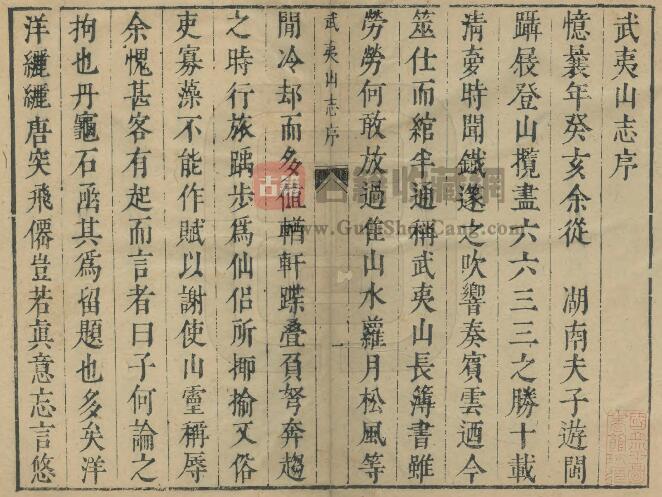 武夷山志序
憶曩年癸亥余從 湖南夫子遊閩
躡屐登山攬盡六六三三之勝十載
清夢時聞鐵邃之吹響奏賓雲迺今
筮仕而綰半通稱武夷山長簿書雖
勞勞何敢放過隹山水蘿月松風等
武夷山志序
一
閒冷却而多值輶軒蹀疊負弩奔趨
之時行旅踽步為仙侶所揶揄又俗
吏寡藻不能作賦以謝使山靈稱辱
余愧甚客有起而言者曰子何論之
拘也丹龜石函其為留題也多矣洋
洋纚纚唐突飛僊豈若眞意忘言悠
古籍
古籍收藏網
www.GuJiShouCang.com